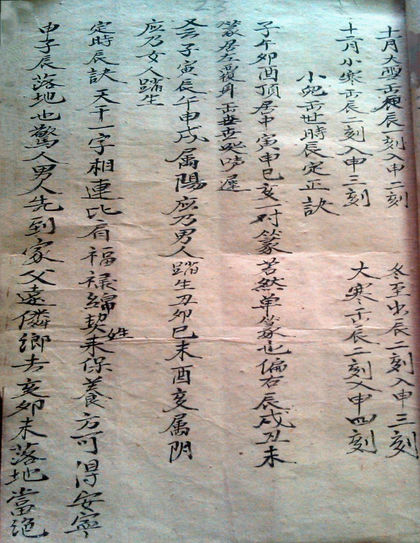 十一月大雪出辰一刻入申二刻 冬至出辰二刻入申三刻
十二月小寒出辰二刻入申三刻 大寒出辰二刻入申四刻
小兒出世時辰定正訣
子午卯酉頂居中寅申巳亥一對篆苦然單篆也偏右辰戌丑未
篆居左覆身出世
又云子寅辰午申戌属陽应乃男人踏生丑卯巳未酉亥属阴
应乃女人踏生
定時辰訣 天干一字相連比眉福禄綿契姓未保養方可得安寧
申子辰落地也驚人男人先到家父遠隣鄉去亥卯未落地當絶